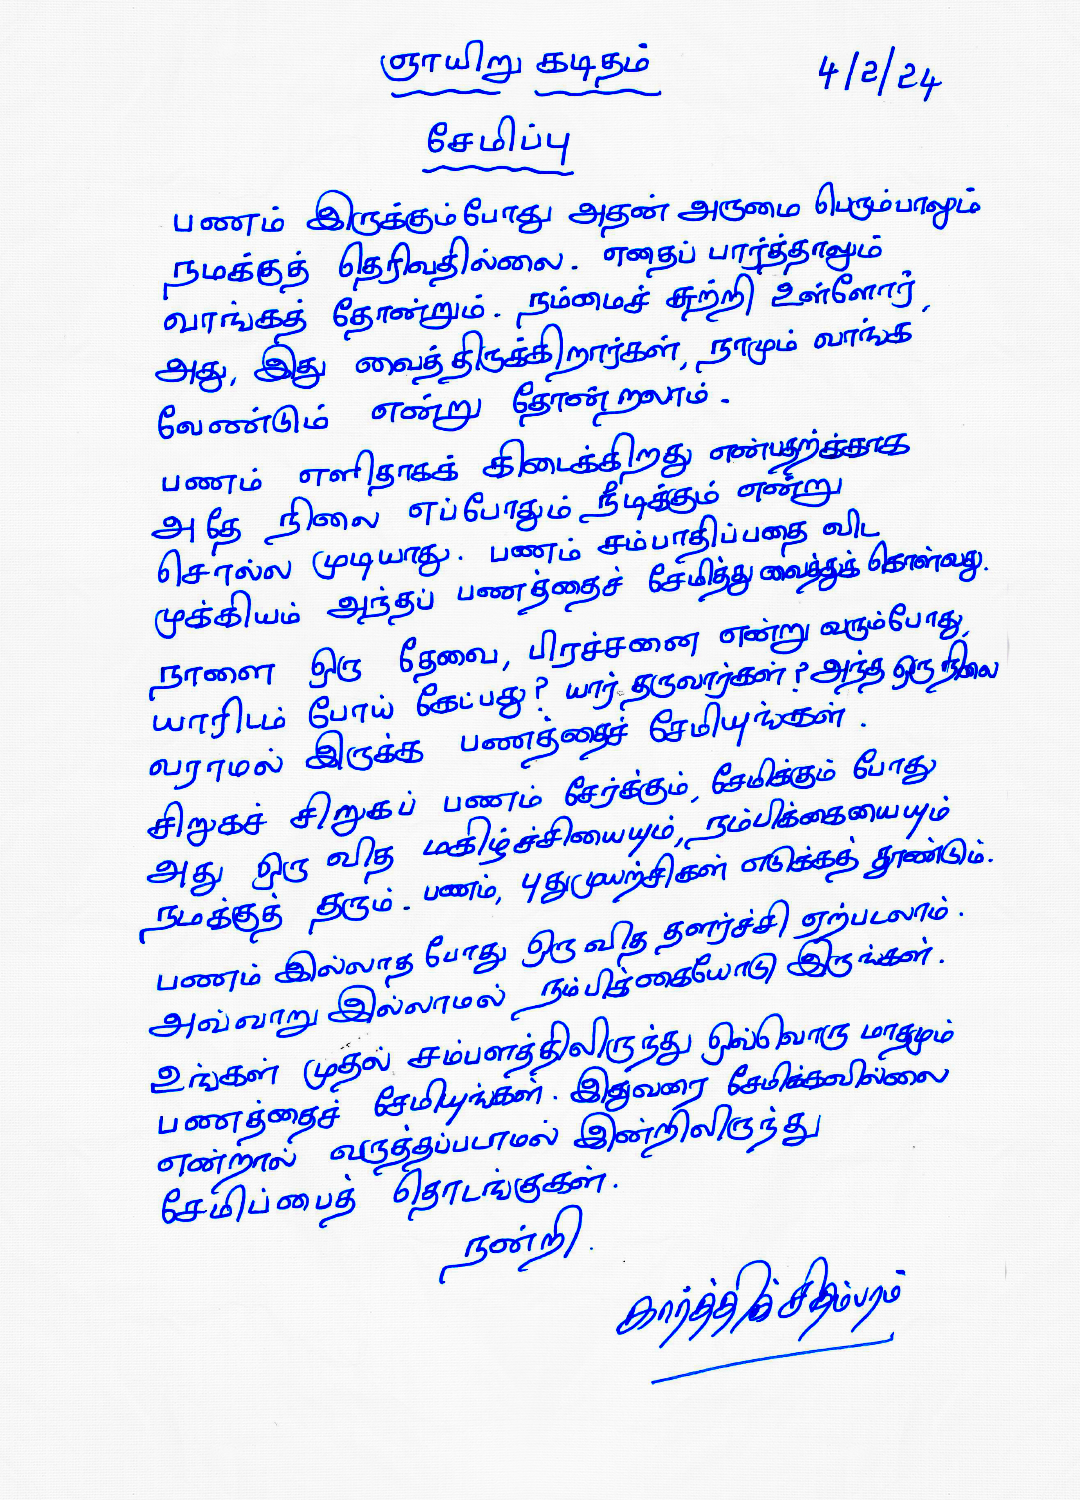 ஞாயிறு கடிதம் 4/2/24
சேமிப்பு
பணம் இருக்கும்போது அதன் அருமை பெரும்பாலும்
நமக்குத் தெரிவதில்லை. எதைப் பார்த்தாலும்
வாங்கத் தோன்றும். நம்மைச் சுற்றி உள்ளோர்,
அது, இது வைத்திருக்கிறார்கள், நாமும் வாங்க
வேண்டும் என்று தோன்றலாம்.
பணம் எளிதாகக் கிடைக்கிறது என்பதற்க்காக
அதே நிலை எப்போதும் நீடிக்கும் என்று
சொல்ல முடியாது. பணம் சம்பாதிப்பதை விட
முக்கியம் அந்தப் பணத்தைச் சேமித்து வைத்துக் கொள்வது.
நாளை ஒரு தேவை, பிரச்சனை என்று வரும்போது,
யாரிடம் போய் கேட்பது? யார் தருவார்கள்? அந்த ஒரு நிலை
வராமல் இருக்க பணத்தைச் சேமியுங்கள்.
சிறுகச் சிறுகப் பணம் சேர்க்கும், சேமிக்கும் போது
அது ஒரு வித மகிழ்ச்சியையும், நம்பிக்கையையும்
நமக்குத் தரும். பணம், புதுமுயற்சிகள் எடுக்கத் தூண்டும்.
பணம் இல்லாத போது ஒரு வித தளர்ச்சி ஏற்படலாம்.
அவ்வாறு இல்லாமல் நம்பிக்கையோடு இருங்கள்.
உங்கள் முதல் சம்பளத்திலிருந்து ஒவ்வொரு மாதமும்
பணத்தைச் சேமியுங்கள். இதுவரை சேமிக்கவில்லை
என்றால் வருத்தப்படாமல் இன்றிலிருந்து
சேமிப்பைத் தொடங்குகள்.
நன்றி.
கார்த்திக் சிதம்பரம்